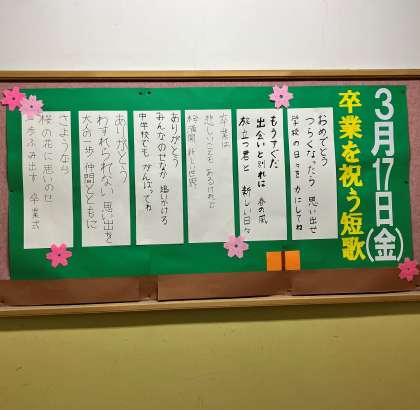 3月17日(金)
卒業を祝う短歌
おめでとう
つらくなったら 思い出せ
学校の日々を 力にしてね
もうすぐだ
出会いと別れは 春の風
旅立つ君と 新しい日々
卒業は
悲しいことも あるけれど
ありがとう
みんなのせなか 追いかける
中学校でも がんばってね
ありがとう
わすれられない 思い出を
大人の一歩 仲間とともに
さようなら
桜の花に 思いのせ
一歩ふみ出す 卒業式